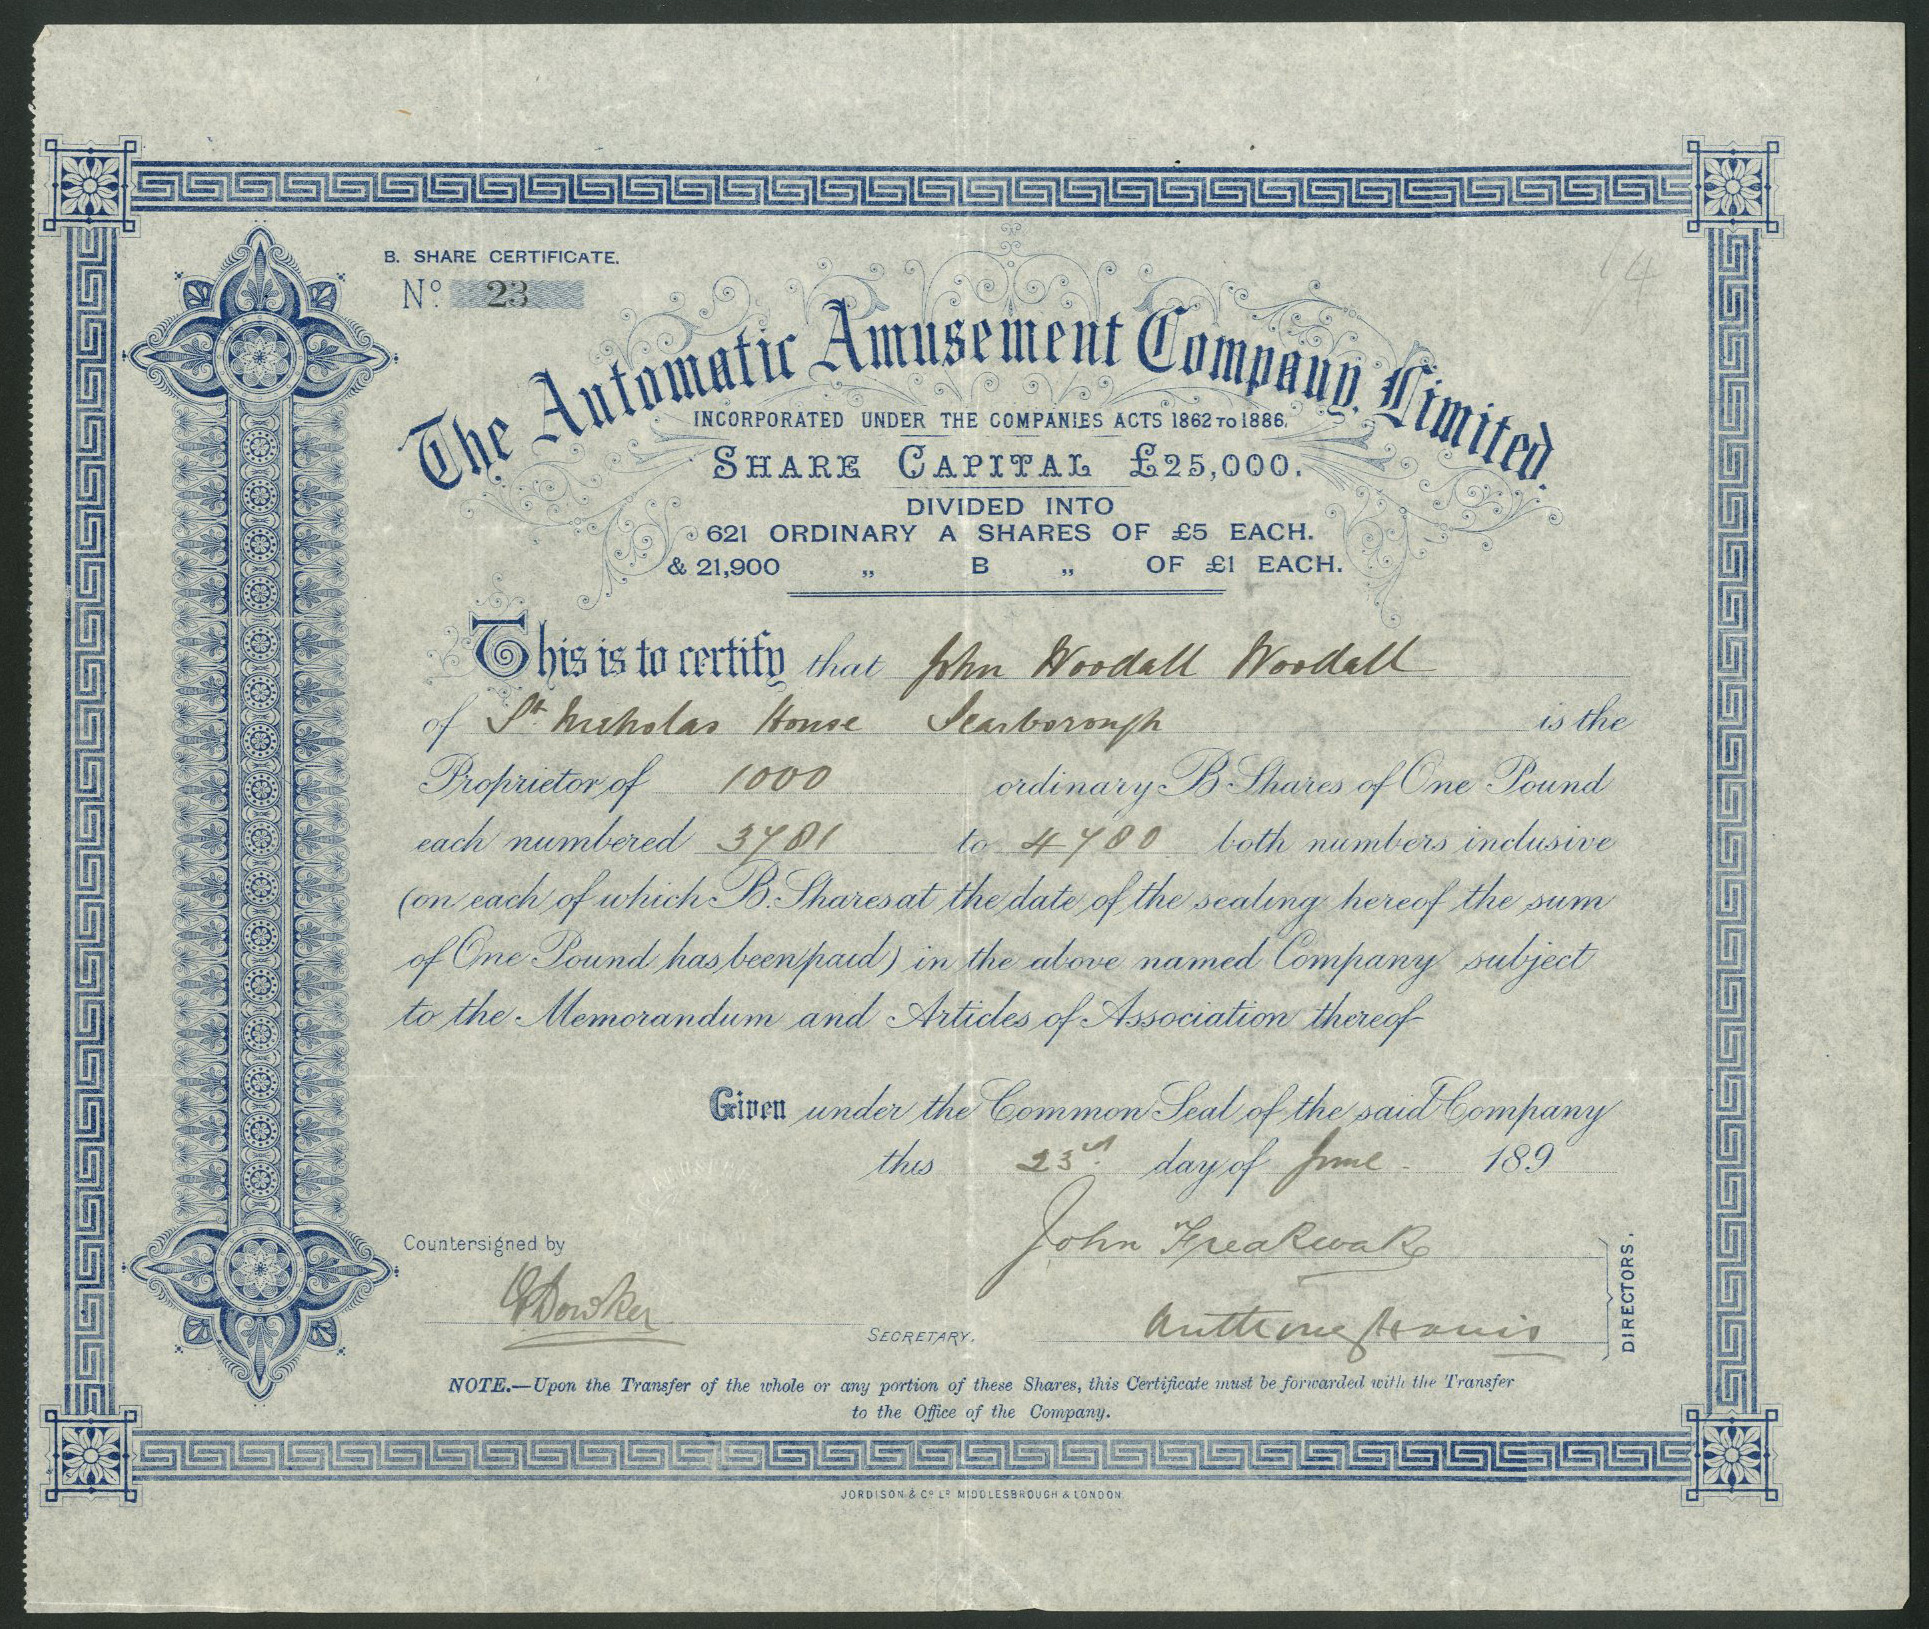 B. SHARE CERTIFICATE.
No. 23
The Automatic Amusement Company, Limited.
INCORPORATED UNDER THE COMPANIES ACTS 1862 TO 1886.
SHARE CAPITAL £25,000.
DIVIDED INTO
621 ORDINARY A SHARES OF £5 EACH.
& 21,900 „ B „ OF £1 EACH.
This is to certify that John Woodall Woodall
of St. Nicholas House Scarborough is the
Proprietor of 1000 ordinary B Shares of One Pound
each numbered 3781 to 4780 both numbers inclusive
(on each of which B. Shares at the date of the sealing hereof the sum
of One Pound has been paid) in the above named Company subject
to the Memorandum and Articles of Association thereof
Given under the Common Seal of the said Company
this 23rd. day of June 189
John Freakwake
Countersigned by
Dowker
SECRETARY.
DIRECTORS.
NOTE.—Upon the Transfer of the whole or any portion of these Shares, this Certificate must be forwarded with the Transfer
to the Office of the Company.
JORDISON & Co. Ld. MIDDLESBROUGH & LONDON